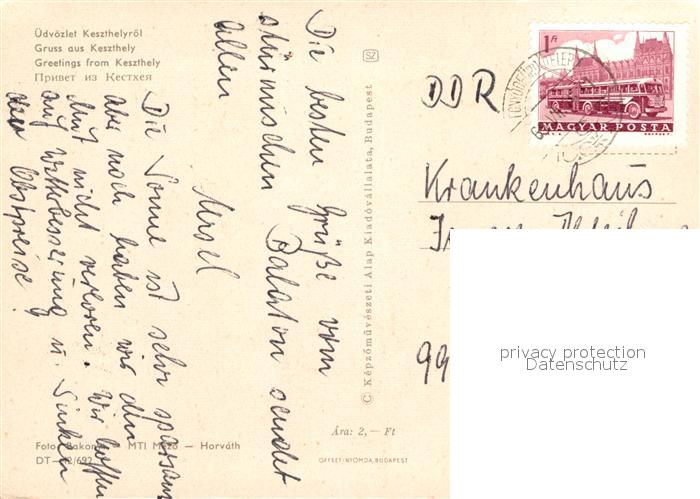 Üdvözlet Keszthelyről
Gruss aus Keszthely
Greetings from Keszthely
Привет из Кестхея
Die besten Grüße vom
stürmischen Balaton sendet
allen
Ursel
Die Sonne ist sehr sparsam
aber noch haben wir den
Mut nicht verloren. Wir hoffen
auf Wetterbesserung u. Sinken
der Obstpreise!
SZ
© Képzőművészeti Alap Kiadóvállalata, Budapest
Ára: 2,— Ft
OFFSET-NYOMDA, BUDAPEST
Foto: Bakonyi — MTI Mező — Horváth
DT—12/692
1 Ft
MAGYAR POSTA
DDR
Krankenhaus
99
privacy protection
Datenschutz